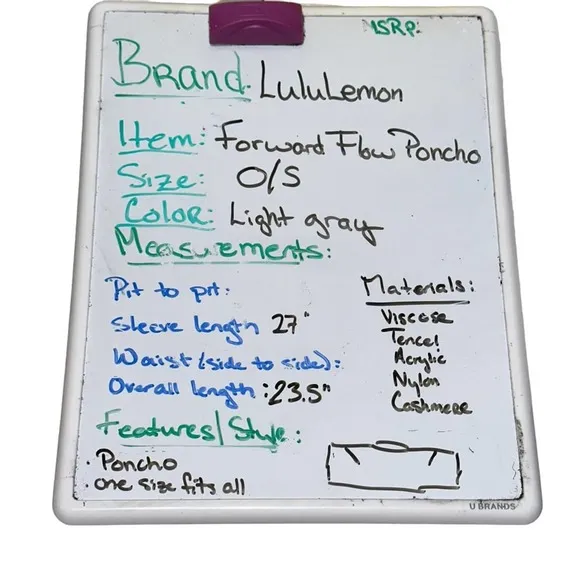 MSRP:
Brand: LuluLemon
Item: Forward Flow Poncho
Size: O/S
Color: Light gray
Measurements:
Pit to pit:
Sleeve length 27"
Waist (side to side):
Overall length: 23.5"
Materials:
Viscose
Tencel
Acrylic
Nylon
Cashmere
Features/Style:
· Poncho
· one size fits all
U BRANDS